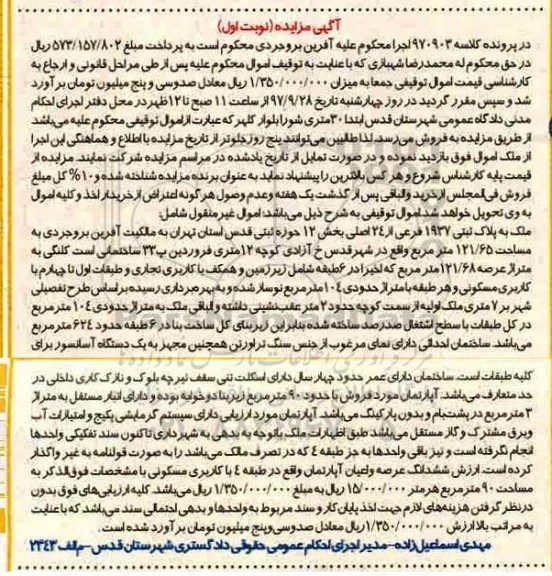 آگهی مزایده (نوبت اول)
در پرونده کلاسه ۹۷۰۹۰۳ اجرا محکوم علیه آفرین بروجردی محکوم است به پرداخت مبلغ ۵۷۳/۱۵۷/۸۰۲ ریال
در حق محکوم له محمدرضا شهبازی که با عنایت به توقیف اموال محکوم علیه پس از طی مراحل قانونی و ارجاع به
کارشناسی قیمت اموال توقیفی جمعا به میزان ۱/۳۵۰/۰۰۰/۰۰۰ ریال معادل صدوسی و پنج میلیون تومان برآورد
شد و سپس مقرر گردید در روز چهارشنبه تاریخ ۹۷/۹/۲۸ از ساعت ۱۱ صبح تا ۱۲ ظهر در محل دفتر اجرای احکام
مدنی دادگاه عمومی شهرستان قدس ابتدا ۳۰متری شورا بلوار کلهر که عبارت از اموال توقیفی محکوم علیه می‌باشد
از طریق مزایده به فروش می‌رسد. لذا طالبین می‌توانند پنج روز جلوتر از تاریخ مزایده با اطلاع و هماهنگی این اجرا
از ملک اموال فوق بازدید نموده و در صورت تمایل از تاریخ یادشده در مراسم مزایده شرکت نمایند. مزایده از
قیمت پایه کارشناس شروع و هر کس بالاترین را پیشنهاد نماید به عنوان برنده مزایده شناخته شده و ۱۰% کل مبلغ
فروش فی‌المجلس از خرید والباقی پس از گذشت یک هفته و عدم وصول هرگونه اعتراض از خریدار اخذ و کلیه اموال
به وی تحویل خواهد شد اموال توقیفی به شرح ذیل می‌باشد: اموال غیرمنقول شامل:
ملک به پلاک ثبتی ۱۹۳۷ فرعی از ۲۴ اصلی بخش ۱۲ حوزه ثبتی قدس استان تهران به مالکیت آفرین بروجردی به
مساحت ۱۲۱/۶۵ متر مربع واقع در شهر قدس خ آزادی کوچه ۱۲متری فروردین پ۳۳ ساختمانی است کلنگی به
متراژ عرصه ۱۲۱/۶۸ متر مربع که اخیرا در ۶طبقه شامل زیرزمین و همکف با کاربری تجاری و طبقات اول تا چهارم با
کاربری مسکونی و هر طبقه با متراژ حدودی ۱۰۴ مترمربع نوساز شده و به بهره‌برداری رسیده براساس طرح تفصیلی
شهر بر ۷ متری ملک اولیه از سمت کوچه حدود ۲ متر عقب‌نشینی داشته و الباقی ملک به متراژ حدودی ۱۰۴ مترمربع
در کل طبقات با سطح اشتغال صددرصد ساخته شده بنابراین زیربنای کل ساخت بنا در ۶ طبقه حدود ۶۲۴ مترمربع
می‌باشد. ساختمان احداثی دارای نمای مرغوب از جنس سنگ تراورتن همچنین مجهز به یک دستگاه آسانسور برای
کلیه طبقات است. ساختمان دارای عمر حدود چهار سال دارای اسکلت بتنی سقف تیرچه بلوک و نازک کاری داخلی در
حد متعارف می‌باشد. آپارتمان مورد فروش با حدود ۹۰ مترمربع زیربنا دوخوابه بوده و دارای انبار مستقل به متراژ
۳ مترمربع در پشت‌بام و بدون پارکینگ می‌باشد. آپارتمان مورد ارزیابی دارای سیستم گرمایشی پکیج و امتیازات آب
وبرق مشترک و گاز مستقل می‌باشد طبق اظهارات ملک باتوجه به بدهی به شهرداری تاکنون سند تفکیکی واحدها
انجام نگرفته است و نیز باقی واحدها به جز طبقه ۴ که در تصرف مالک می‌باشد را به صورت قولنامه به غیر واگذار
کرده است. ارزش ششدانگ عرصه واعیان آپارتمان واقع در طبقه ۴ با کاربری مسکونی با مشخصات فوق‌الذکر به
مساحت ۹۰ مترمربع هرمتر ۱۵/۰۰۰/۰۰۰ ریال به مبلغ ۱/۳۵۰/۰۰۰/۰۰۰ ریال می‌باشد. کلیه ارزیابی‌های فوق بدون
درنظر گرفتن هزینه‌های لازم جهت اخذ پایان کار و سند مربوط به واحدها و بدهی احتمالی سند می‌باشد که با عنایت
به مراتب بالا ارزش ۱/۳۵۰/۰۰۰/۰۰۰ ریال معادل صدوسی‌وپنج میلیون تومان برآورد شده است.
مهدی اسماعیل‌زاده-مدیر اجرای احکام عمومی حقوقی دادگستری شهرستان قدس-م‌الف ۲۳۴۳